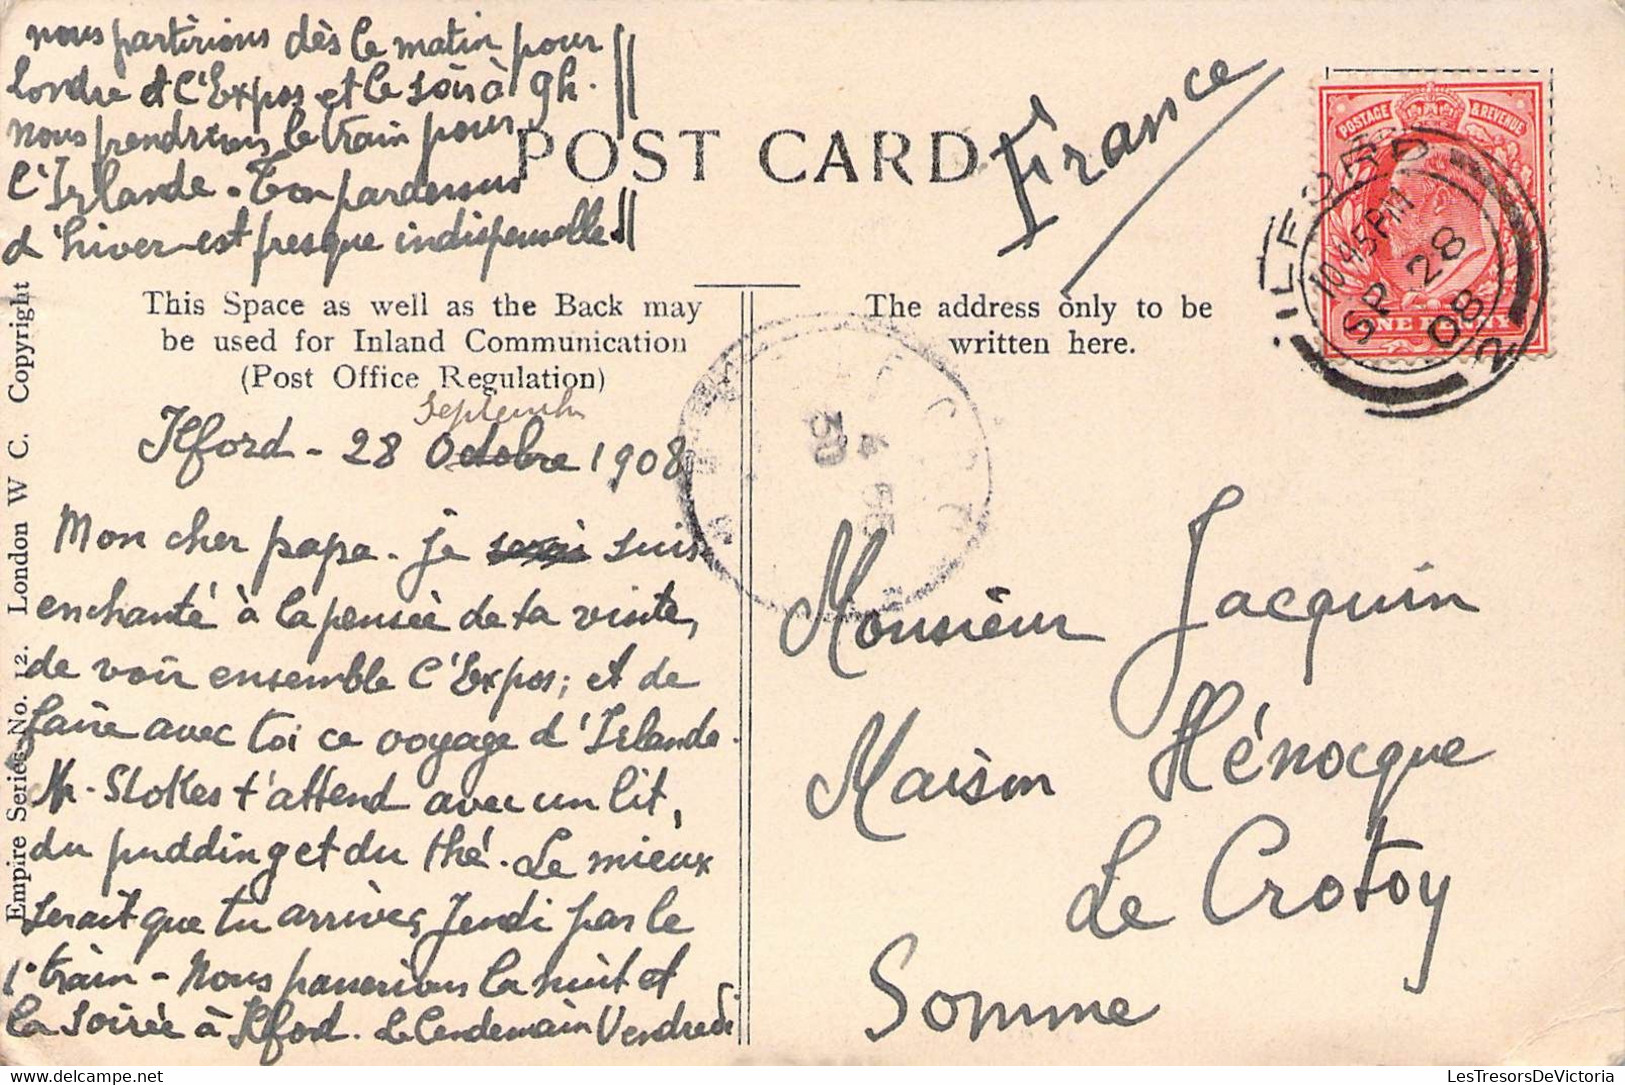 nous partirions dès le matin pour
Londre et l'Expos et le soir à 9h.
nous prendrions le train pour
l'Irlande - Ton pardessus
d'hiver est presque indispensable
POST CARD
France
POSTAGE & REVENUE
ONE PENNY
ILFORD
10 45 PM
SP 28
08
2
This Space as well as the Back may
be used for Inland Communication
(Post Office Regulation)
The address only to be
written here.
Septembre
Ilford - 28 Octobre 1908
Mon cher papa - je suis
enchanté à la pensée de ta visite,
de voir ensemble l'Expos; et de
faire avec toi ce voyage d'Irlande.
Mr. Stokes t'attend avec un lit,
du pudding et du thé. Le mieux
serait que tu arrives Jeudi par le
1° train - Nous passerions la nuit et
la soirée à Ilford. Le lendemain Vendredi
Monsieur Jacquin
Maison Hénocque
Le Crotoy
Somme
4 55
30
Empire Series No. 12. London W C. Copyright
LesTresorsDeVictoria